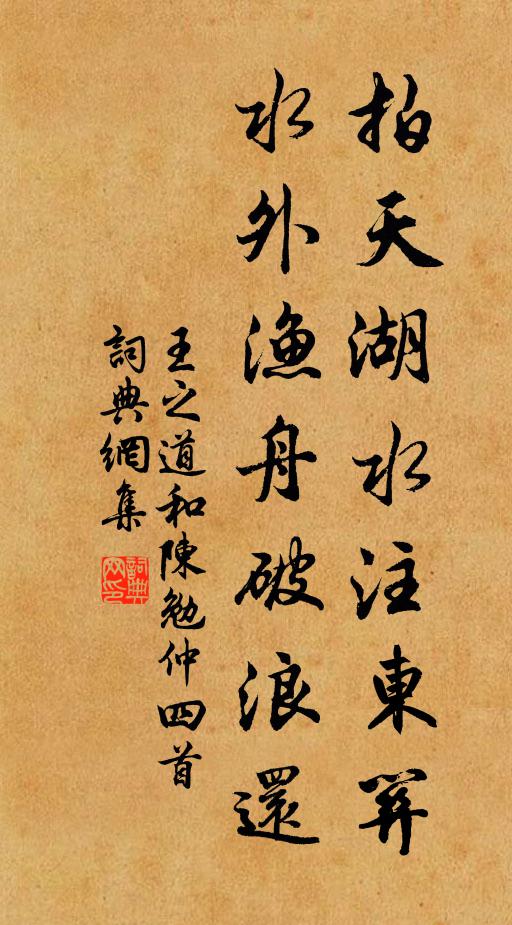 拍天湖水注東關
水外漁舟破浪還
王之道和陳勉仲四首
詞典網集
詞典网印